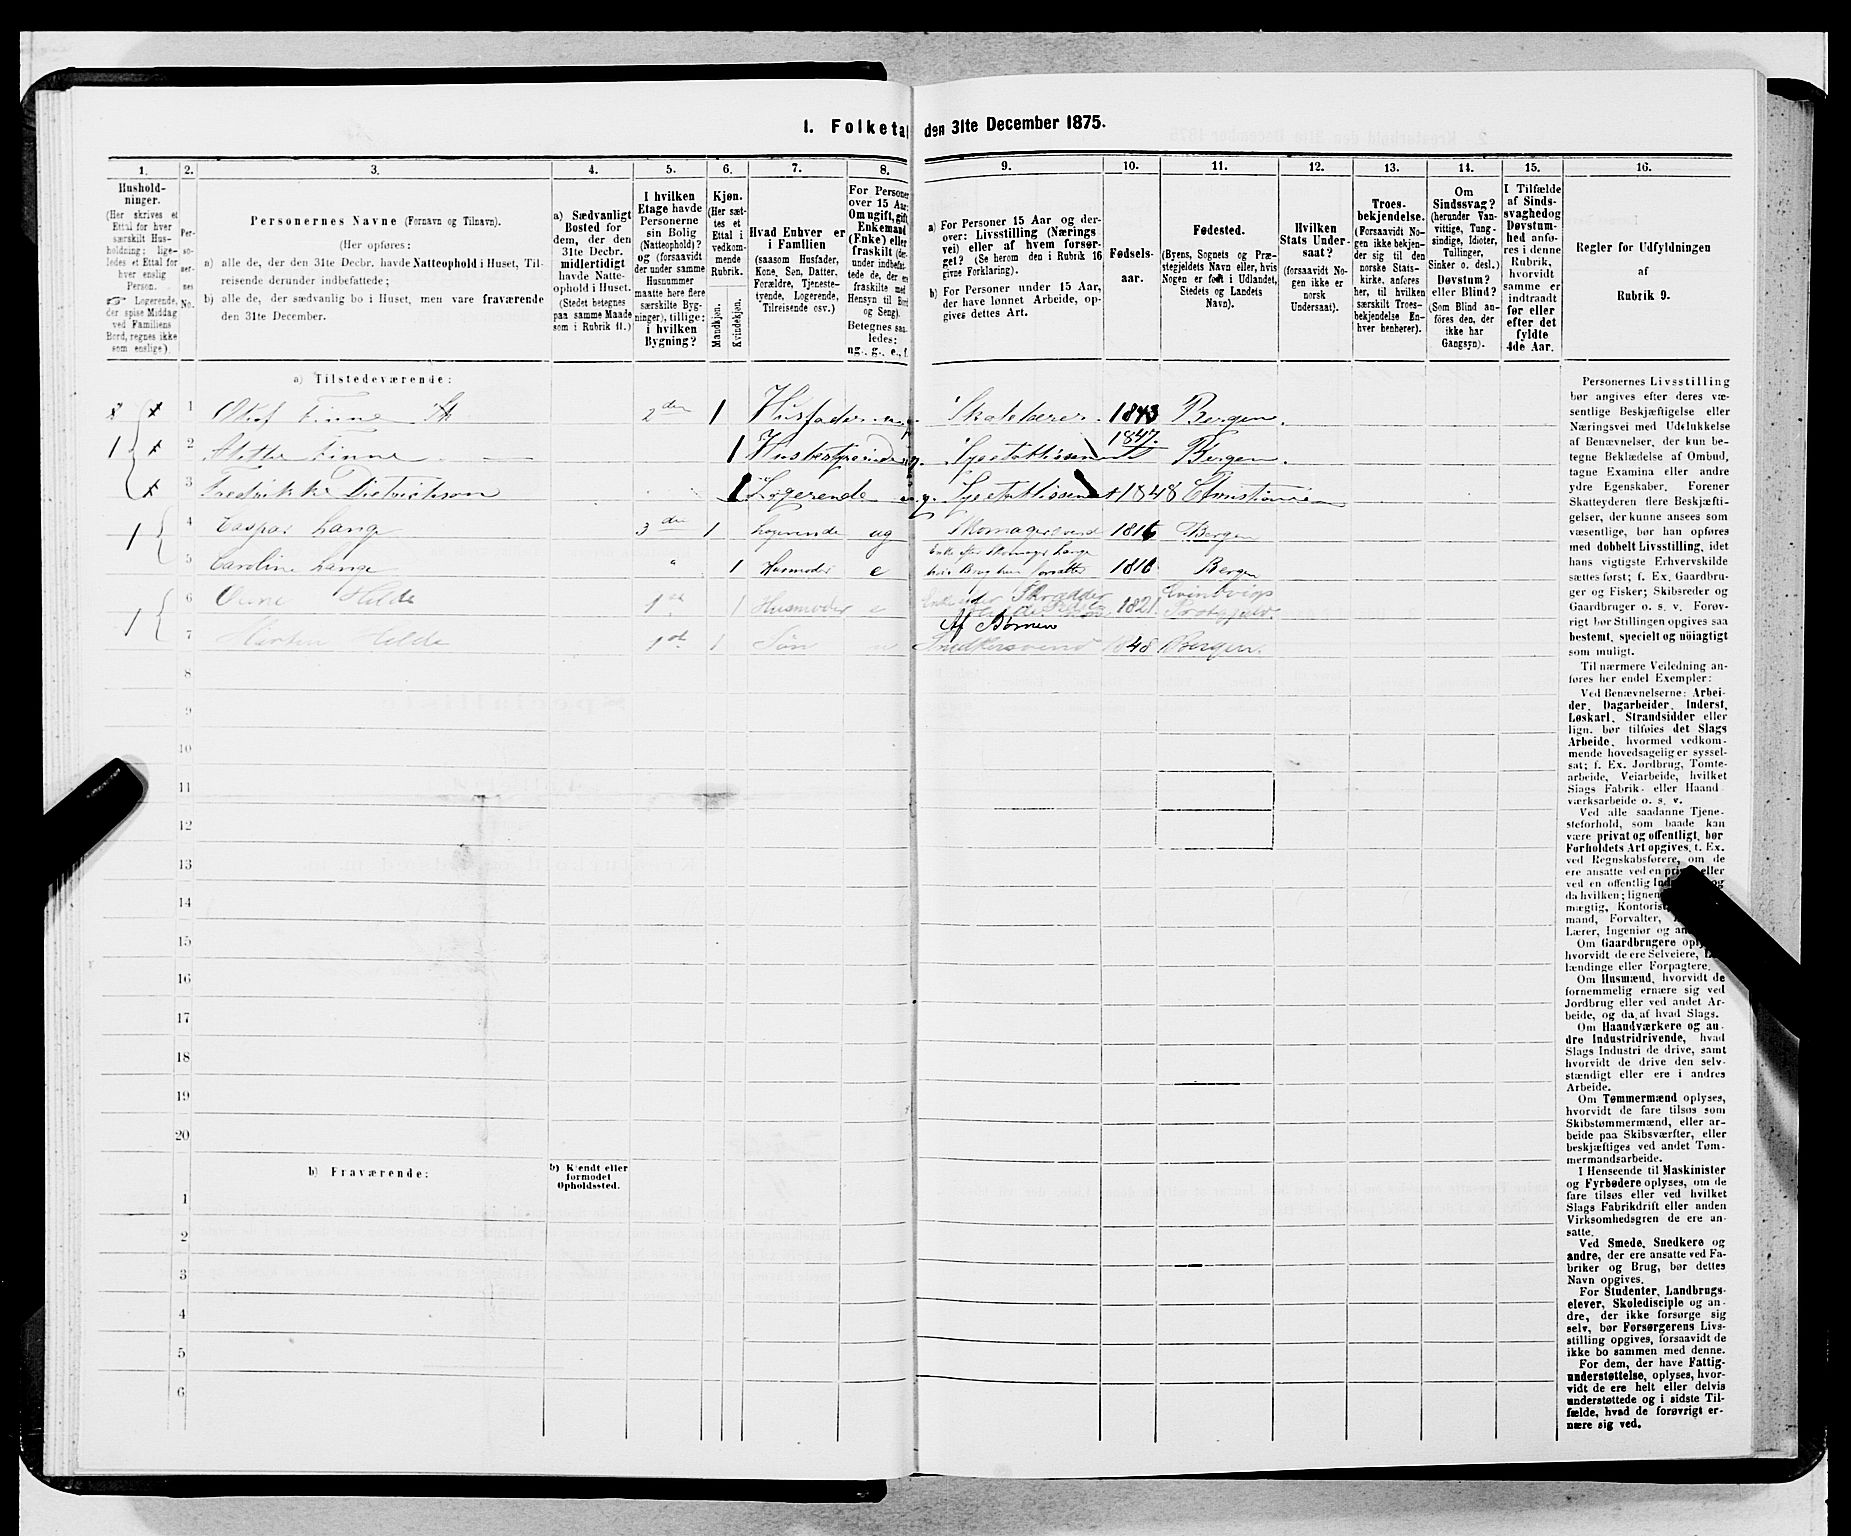 I. Folketal den 31te December 1875.
1. 2. 3. 4. 5. 6. 7. 8. 9. 10. 11. 12. 13. 14. 15. 16.
Hushold-
ninger.
(Her skrives et
Ettal for hver
særskilt Hus-
holdning; lige-
ledes et Ettal for
hver enslig
Person.
☞ Logerende,
der spise Middag
ved Familiens
Bord, regnes ikke
som enslige).
Per-
so-
ner-
nes
No.
Personernes Navne (Fornavn og Tilnavn).
(Her opføres:
a) alle de, der den 31te Decbr. havde Natteophold i Huset, Til-
reisende derunder indbefattede;
b) alle de, der sædvanlig bo i Huset, men vare fraværende
den 31te December.
a) Sædvanligt
Bosted for
dem, der den
31te Decbr.
midlertidigt
havde Natte-
ophold i Huset.
(Stedet betegnes
paa samme Maade
som i Rubrik 11.)
I hvilken
Etage havde
Personerne
sin Bolig
(Natteophold)?
og (forsaavidt
der under samme
Husnummer
maatte høre flere
særskilte Byg-
ninger), tillige:
i hvilken
Bygning?
Kjøn.
(Her sæt-
tes et
Ettal i
vedkom-
mende
Rubrik.
Mandkjøn.
Kvindekjøn.
Hvad Enhver er
i Familien
(saasom Husfader,
Kone, Søn, Datter,
Forældre, Tjeneste-
tyende, Logerende,
Tilreisende osv.)
For Personer
over 15 Aar:
Om ugift, gift,
Enkemand
(Enke) eller
fraskilt (der-
under indbefat-
tede de, der ere
fraskilte med
Hensyn til Bord
og Seng).
Betegnes saa-
ledes:
ug., g., e., f.
a) For Personer 15 Aar og der-
over: Livsstilling (Nærings-
vei) eller af hvem forsør-
get? (Se herom den i Rubrik 16
givne Forklaring).
b) For Personer under 15 Aar,
der have lønnet Arbeide, op-
gives dettes Art.
Fødsels-
aar.
Fødested.
(Byens, Sognets og Præ-
stegjeldets Navn eller, hvis
Nogen er født i Udlandet,
Stedets og Landets
Navn).
Hvilken
Stats Under-
saat?
(forsaavidt No-
gen ikke er
norsk
Undersaat).
Troes-
bekjendelse.
(Forsaavidt No-
gen ikke bekjen-
der sig til den
norske Stats-
kirke, anføres
her, til hvilken
særskilt Troes-
bekjendelse En-
hver henhører).
Om
Sindssvag?
(herunder Van-
vittige, Tung-
sindige, Idioter,
Tullinger,
Sinker o. desl.)
Døvstum?
eller Blind?
(Som Blind an-
føres den, der
ikke har
Gangsyn).
I Tilfælde
af Sinds-
svaghed og
Døvstum-
hed anfø-
res i denne
Rubrik,
hvorvidt
samme er
indtraadt
før eller
efter det
fyldte
4de Aar.
Regler for Udfyldningen
af
Rubrik 9.
a) Tilstedeværende:
1 Oluf Finne 2den 1 Husfader 1843 Bergen.
1 2 Finne 1 Husbestyrerinde 1847. Bergen.
3 Fredrikke Dietrichson 1 Logerende ug. 1848 Christiania
1 4 Caspar Lange 3die 1 Logerende ug Skomagersvend 1816 Bergen
5 Caroline Lange " 1 Husmoder e Enke efter Skomager Lange
hvis Brug hun forsætter 1810 Bergen
6 Hilde 1ste 1 Husmoder e Enke efter Skrædder 1821. Evindvigs
Præstegjeld.
Af Børnene
1 7 Hilde 1ste 1 Søn u Snedkersvend 1848 Bergen.
8
9
10
11
12
13
14
15
16
17
18
19
20
b) Fraværende:
b) Kjendt eller
formodet
Opholdssted.
1
2
3
4
5
6
Personernes Livsstilling
bør angives efter deres væ-
sentlige Beskjæftigelse eller
Næringsvei med Udelukkelse
af Benævnelser, der kun be-
tegne Beklædelse af Ombud,
tagne Examina eller andre
ydre Egenskaber. Forener
Skatteyderen flere Beskjæfti-
gelser, der kunne ansees som
væsentlige, bør han opføres
med dobbelt Livsstilling, idet
hans vigtigste Erhvervskilde
sættes først; f. Ex. Gaardbru-
ger og Fisker; Skibsreder og
Gaardbruger o. s. v. Forøv-
rigt bør Stillingen opgives saa
bestemt, specielt og nøiagtigt
som muligt.
Til nærmere Veiledning an-
føres her endel Exempler:
Ved Benævnelserne: Arbei-
der, Dagarbeider, Inderst,
Løskarl, Strandsidder eller
lign. bør tilføies det Slags
Arbeide, hvormed vedkom-
mende hovedsagelig er syssel-
sat; f. Ex. Jordbrug, Tomte-
arbeide, Veiarbeide, hvilket
Slags Fabrik- eller Haand-
værksarbeide o. s. v.
Ved alle saadanne Tjene-
steforhold, som baade kan
være privat og offentligt, bør
Forholdets Art opgives, t. Ex.
ved Regnskabsførere, om de
ere ansatte ved en privat eller
ved en offentlig
da hvilken; lignende
mægtig, Kontorist
mand, Forvalter,
Lærer, Ingeniør og
Om Gaardbrugere
hvorvidt de ere Selveiere,
lændinge eller Forpagtere.
Om Husmænd, hvorvidt de
fornemmelig ernære sig ved
Jordbrug eller ved andet Ar-
beide, og da af hvad Slags.
Om Haandværkere og an-
dre Industridrivende, hvad
Slags Industri de drive, samt
hvorvidt de drive den selv-
stændigt eller ere i andres
Arbeide.
Om Tømmermænd oplyses,
hvorvidt de fare tilsøs som
Skibstømmermænd, eller ar-
beide paa Skibsværfter, eller
beskjæftiges ved andet Tøm-
mermandsarbeide.
I Henseende til Maskinister
og Fyrbødere oplyses, om de
fare tilsøs eller ved hvilket
Slags Fabrikdrift eller anden
Virksomhedsgren de ere an-
satte.
Ved Smede, Snedkere og
andre, der ere ansatte ved Fa-
briker og Brug, bør dettes
Navn opgives.
For Studenter, Landbrugs-
elever, Skoledisciple og an-
dre, der ikke forsørge sig
selv, bør Forsørgerens Livs-
stilling opgives, forsaavidt de
ikke bo sammen med denne.
For dem, der have Fattig-
understøttelse, oplyses, hvor-
vidt de ere helt eller delvis
understøttede og i sidste Til-
fælde, hvad de forøvrigt er-
nære sig ved.